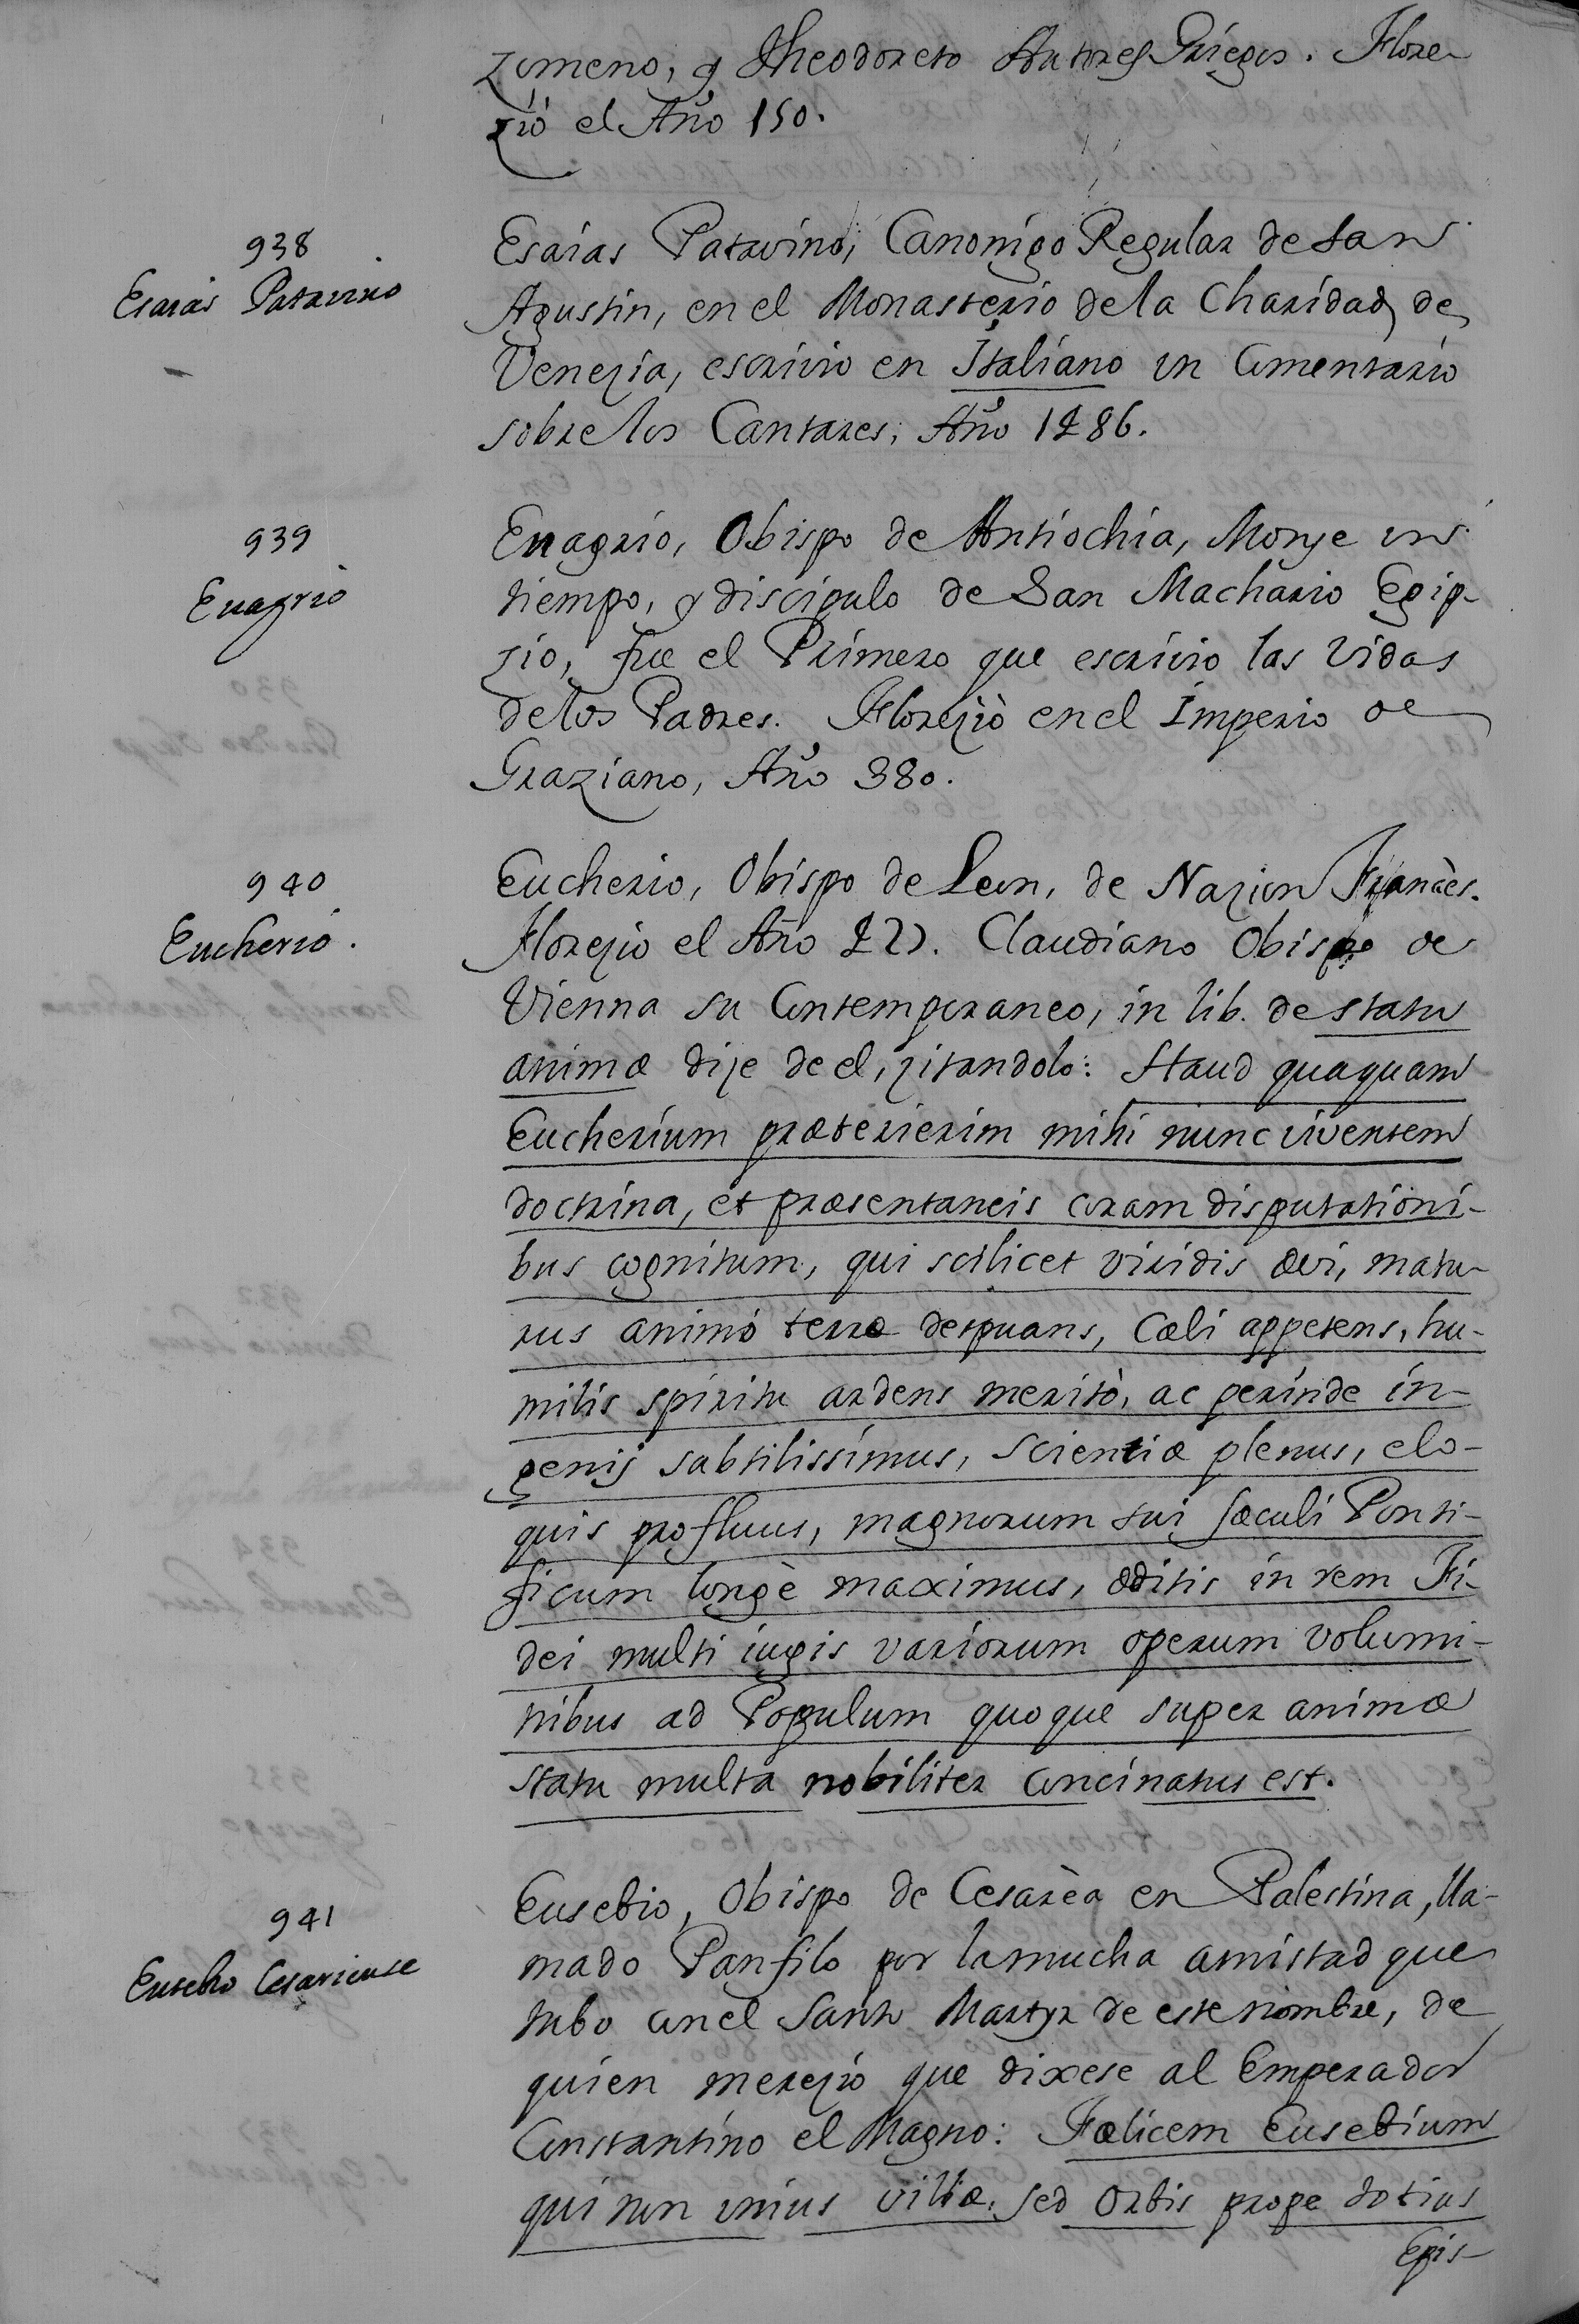 zomeno, y Theodoreto Autores Griegos. Flore-
zió el Año 150.
938
Esaias Patavino
Esaias Patavino, Canonigo Regular de San
Agustin, en el Monasterio de la Charidad de
Venezia, escrivio en Italiano un Comentario
sobre los Cantares, Año 1486.
939
Euagrio
Euagrio, Obispo de Antiochia, Monje un
tiempo, y discipulo de San Machario Egip-
zio, fue el Primero que escrivio las Vidas
de los Padres. Florezió en el Imperio de
Graziano, Año 380.
940
Eucherio.
Eucherio, Obispo de Leon, de Nazion Franzès.
Florezio el Año Claudiano Obispo de
Vienna su Contemporaneo, in lib. de statu
animæ dize de el, zitandolo: Haud quaquam
Eucherium præterierim mihi nunc viventem
doctrina, et præsentaneis coram disputationi-
bus cognitum, qui scilicet viridis ævi, matu-
rus animo terræ despuans, Cœli appetens, hu-
milis spiritu ardens meritò, ac perinde in-
genij subtilissimus, scientiæ plenus, elo-
quis profluus, magnorum sui sæculi Ponti-
ficum longè maximus, æditis in rem Fi-
dei multi iugis variorum operum volumi-
nibus ad Populum quoque super animæ
statu multa nobiliter concinatus est.
941
Eusebio Cesariense
Eusebio, Obispo de Cesarèa en Palestina, lla-
mado Panfilo por la mucha amistad que
tubo con el Santo Martyr de este nombre, de
quien merezio que dixese al Emperador
Constantino el Magno: Fœlicem Eusebium
qui non unius villæ, sed Orbis prope totius
Epis-